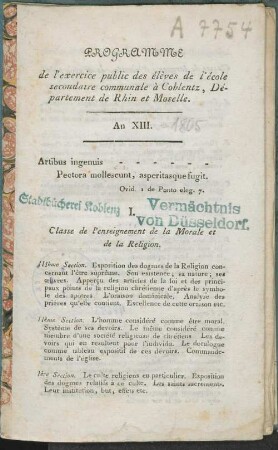 A 7754
PROGRAMME
de l'exercice public des élèves de l'école
secondaire communale à Coblentz, Dé-
partement de Rhin et Moselle.
An XIII.
1805
Artibus ingenuis - - - - - -
Pectora mollescunt, asperitasque fugit.
Ovid. 1 de Ponto eleg. 7.
Stadtbücherei Koblenz
Vermächtnis
von Düsseldorf.
I.
Classe de l'enseignement de la Morale et
de la Religion.
IIIème Section. Exposition des dogmes de la Religion con-
cernant l'être suprême. Son existence; sa nature; ses
œuvres. Apperçu des articles de la foi et des princi-
paux points de la religion chrétienne d'après le symbo-
le des apôtres. L'oraison dominicale. Analyse des
prieres qu'elle contient. Excellence de cette oraison etc.
IIème Section. L'homme considéré comme être moral.
Système de ses devoirs. Le même considéré comme
membre d'une société religieuse de chrétiens. Les de-
voirs qui en résultent pour l'individu. Le decalogue
comme tableau expositif de ces devoirs. Commande-
ments de l'église.
Ière Section. Le culte religieux en particulier. Exposition
des dogmes relatifs à ce culte. Les saints sacrements.
Leur institution, but, effets etc.